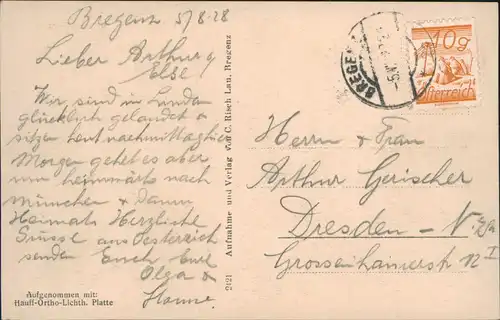 Bregenz 5/8.28
Lieber Arthur &
Else!
Wir sind in Lindau
glücklich gelandet &
sitzen heut nachmittag hier
Morgen geht es aber
nun heimwärts nach
München & dann
Heimat. Herzliche
Grüsse aus Oesterreich
senden Euch Eure
Olga &
Hanne.
Aufgenommen mit:
Hauff-Ortho-Lichth. Platte
2121 Aufnahme und Verlag von C. Risch Lau, Bregenz
BREGENZ
10 g
Österreich
Herrn & Frau
Arthur Gerischer
Dresden – N.
Grossenhainerstr.